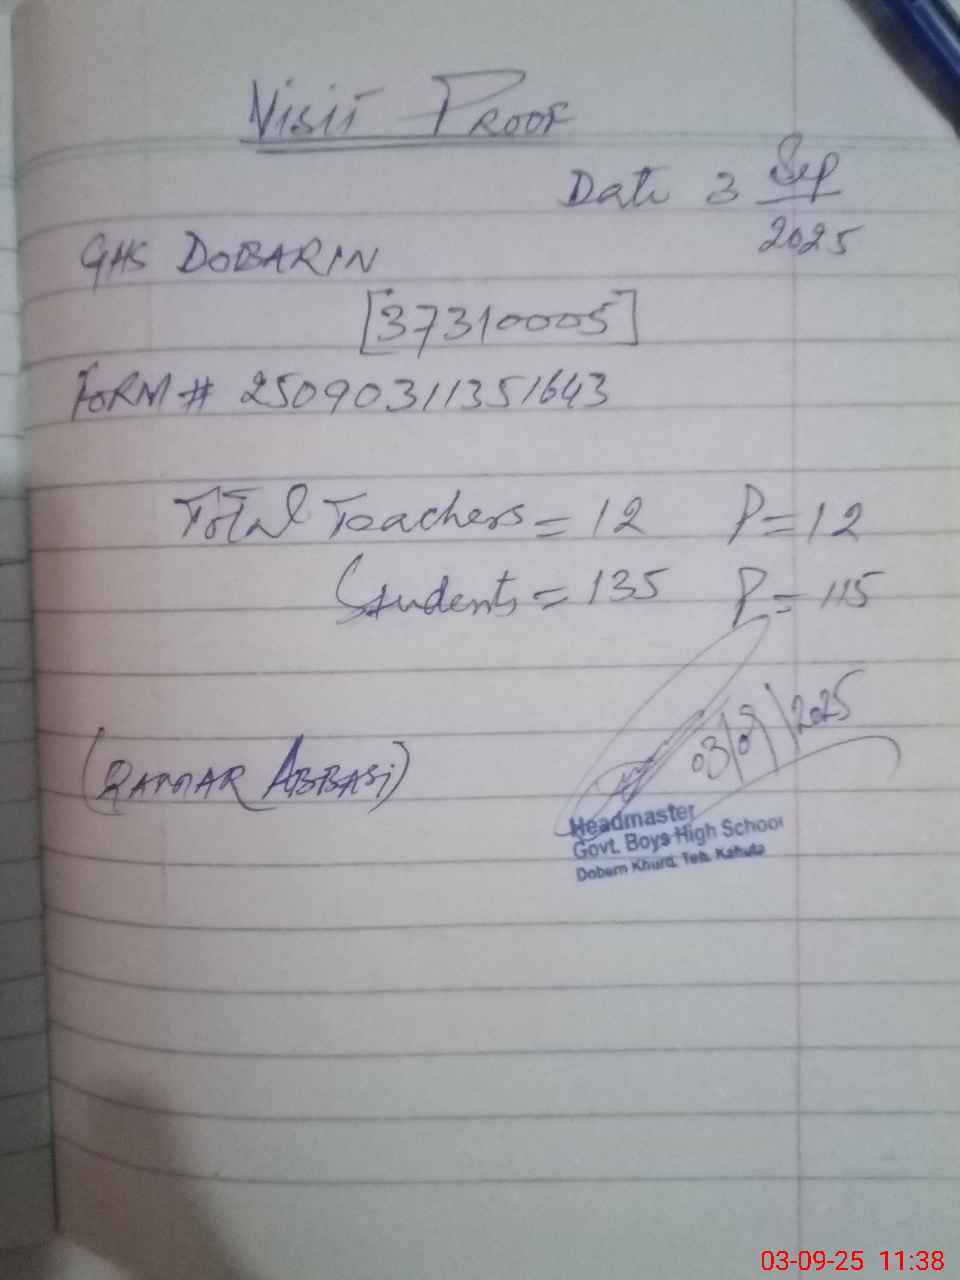 Visit Proof
Date 3 Sep
2025
GHS DOBARIN
[37310005]
FORM # 25090311351643
Total Teachers = 12 P = 12
Students = 135 P = 115
03/09/2025
ABBASI)
Headmaster
Govt. Boys High School
Khurd Teh. Kahuta
03-09-25 11:38